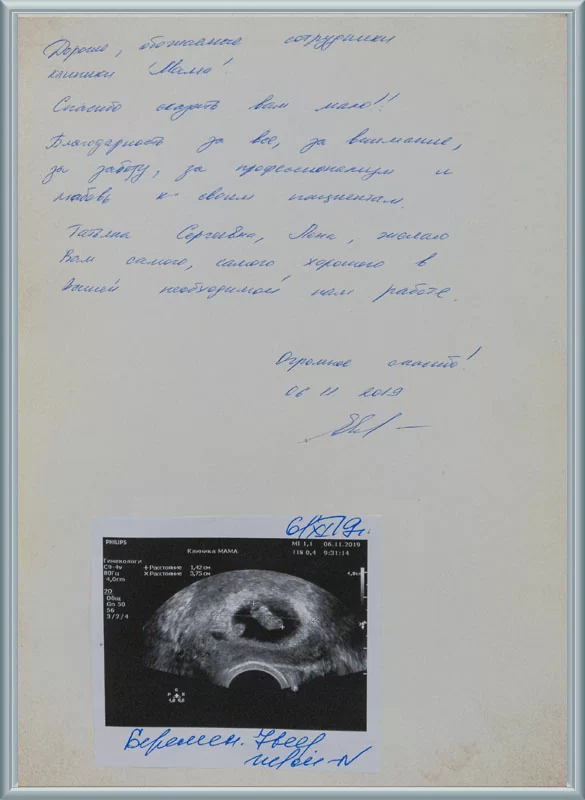 Дорогие, обожаемые сотрудники
клиники "Мама"!
Спасибо сказать вам мало!!
Благодарность за все, за внимание,
за заботу, за профессионализм и
любовь к своим пациентам.
Татьяна Сергеевна, Лена, желаю
Вам самого, самого хорошего в
Вашей необходимой нам работе.
Огромное спасибо!
06 11 2019
6/XI 19г.
PHILIPS
Клиника МАМА
MI 1,1 06.11.2019
TIS 0,4 9:31:14
Гинекологи
C9-4v
80Гц
4,0cm
+ Расстояние 1,42 см
X Расстояние 3,75 см
4,0см
2D
Общ
Gn 50
56
3/2/4
Беремен. 7нед